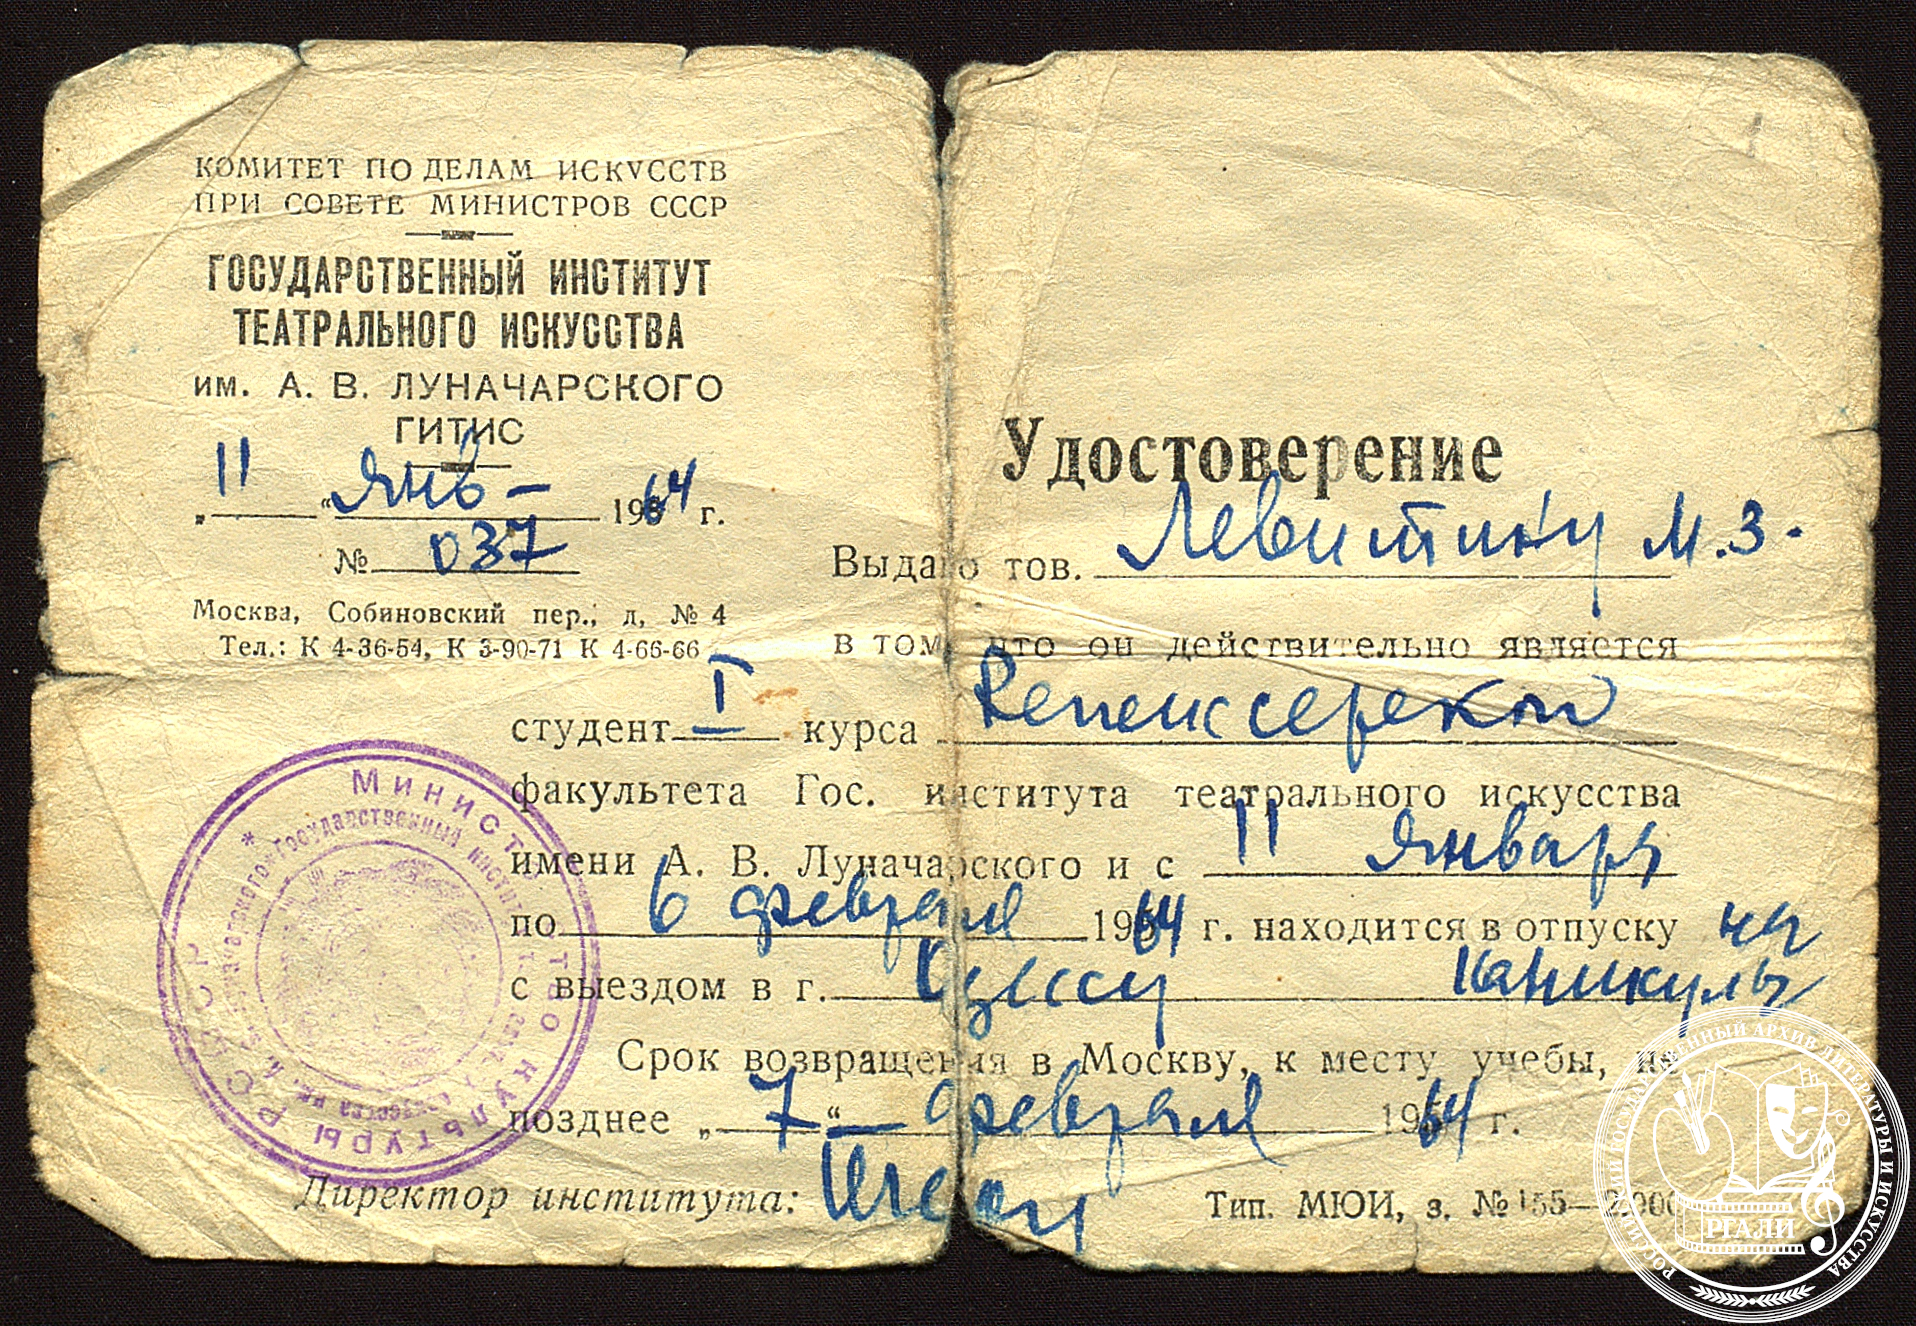 КОМИТЕТ ПО ДЕЛАМ ИСКУССТВ
ПРИ СОВЕТЕ МИНИСТРОВ СССР
ГОСУДАРСТВЕННЫЙ ИНСТИТУТ
ТЕАТРАЛЬНОГО ИСКУССТВА
им. А. В. ЛУНАЧАРСКОГО
ГИТИС
„11“ янв- 1964 г.
№ 037
Москва, Собиновский пер., д, № 4
Тел.: К 4-36-54, К 3-90-71 К 4-66-66
Удостоверение
Выдано тов. Левитину М.З.
в том, что он действительно является
студент I курса Режиссерского
факультета Гос. института театрального искусства
имени А. В. Луначарского и с 11 января
по 6 февраля 1964 г. находится в отпуску на
с выездом в г. Одессу каникулы
Срок возвращения в Москву, к месту учебы, не
позднее „7“ февраля 1964 г.
Директор института:
Тип. МЮИ, з. № 155—2000
МИНИСТЕРСТВО КУЛЬТУРЫ РСФСР
Государственный институт
РОССИЙСКИЙ ГОСУДАРСТВЕННЫЙ АРХИВ ЛИТЕРАТУРЫ И ИСКУССТВА
РГАЛИ